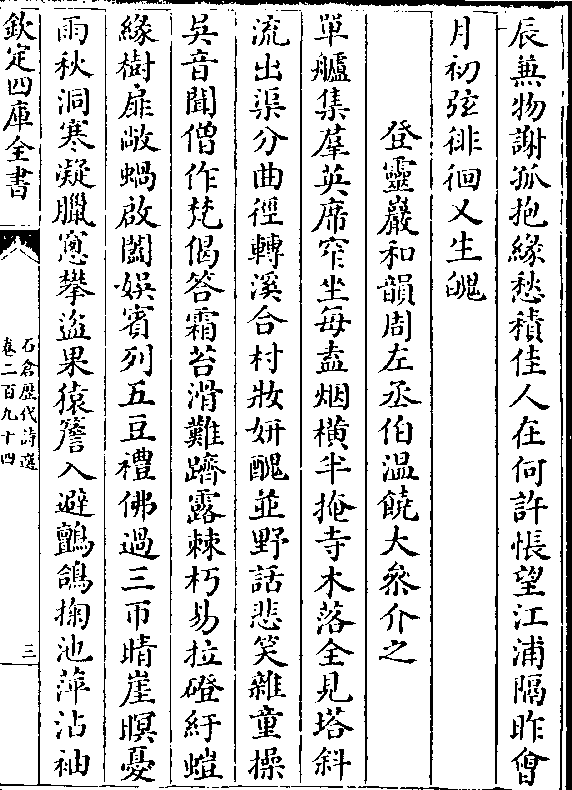 辰蕪物謝孤抱緣愁積佳人在何許悵望江浦隔昨㑹
月初弦徘徊又生魄
登靈巖和韻周左丞伯温饒大叅介之
單艫集羣英席窄坐每盍烟橫半掩寺木落全見塔斜
流出渠分曲徑轉溪合村妝妍醜並野話悲笑雜童操
吳音聞僧作梵偈答霜苔滑難躋露棘朽易拉磴紆螘
緣樹扉敞蝸啟闔娛賓列五豆禮佛過三帀晴崖暝憂
雨秋洞寒凝臘窻攀盜果猿簷入避鸇鴿掬池萍沾袖
欽定四庫全書
石倉歴代詩選
卷二百九十四
三